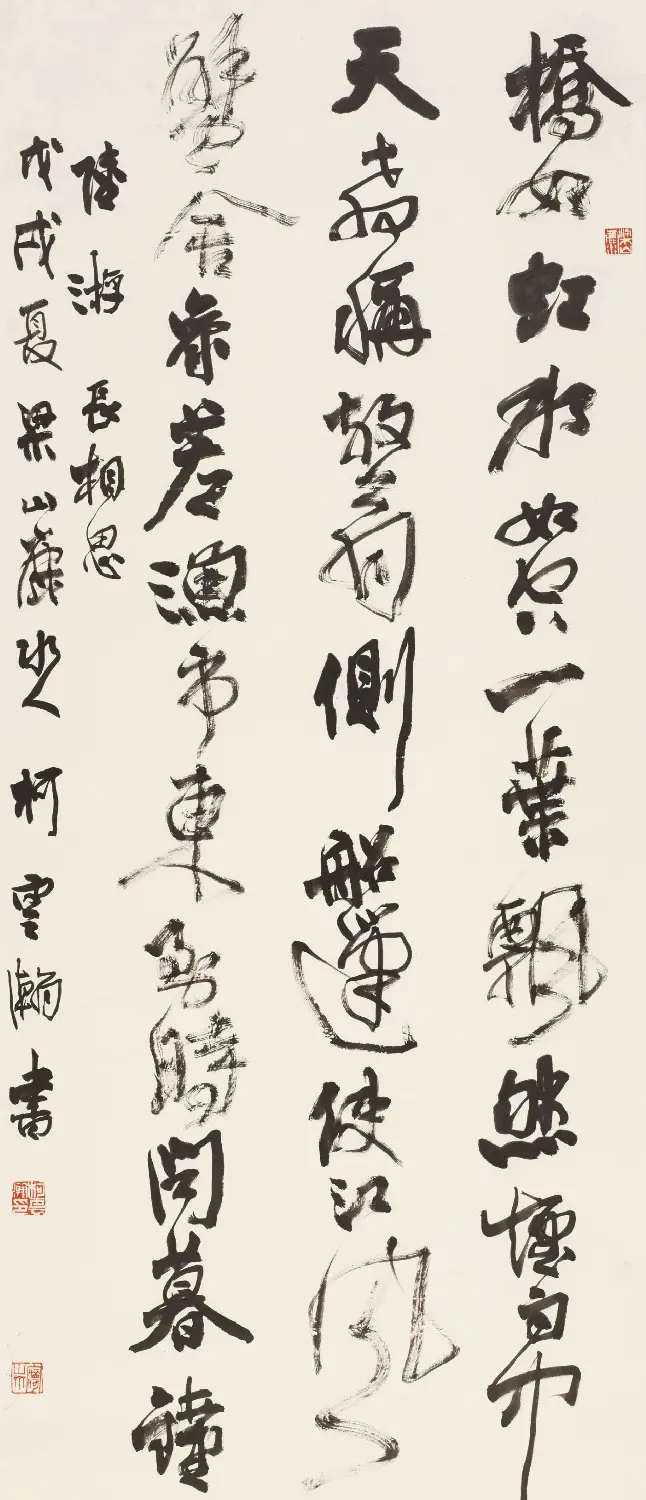 橋如虹水如空一葉飄然煙雨中
天教稱放翁側船篷使江風
蟹舍參差漁市東到時聞暮鐘
陸游 長相思
戊戌夏梁山麓水人柯雲瀚書